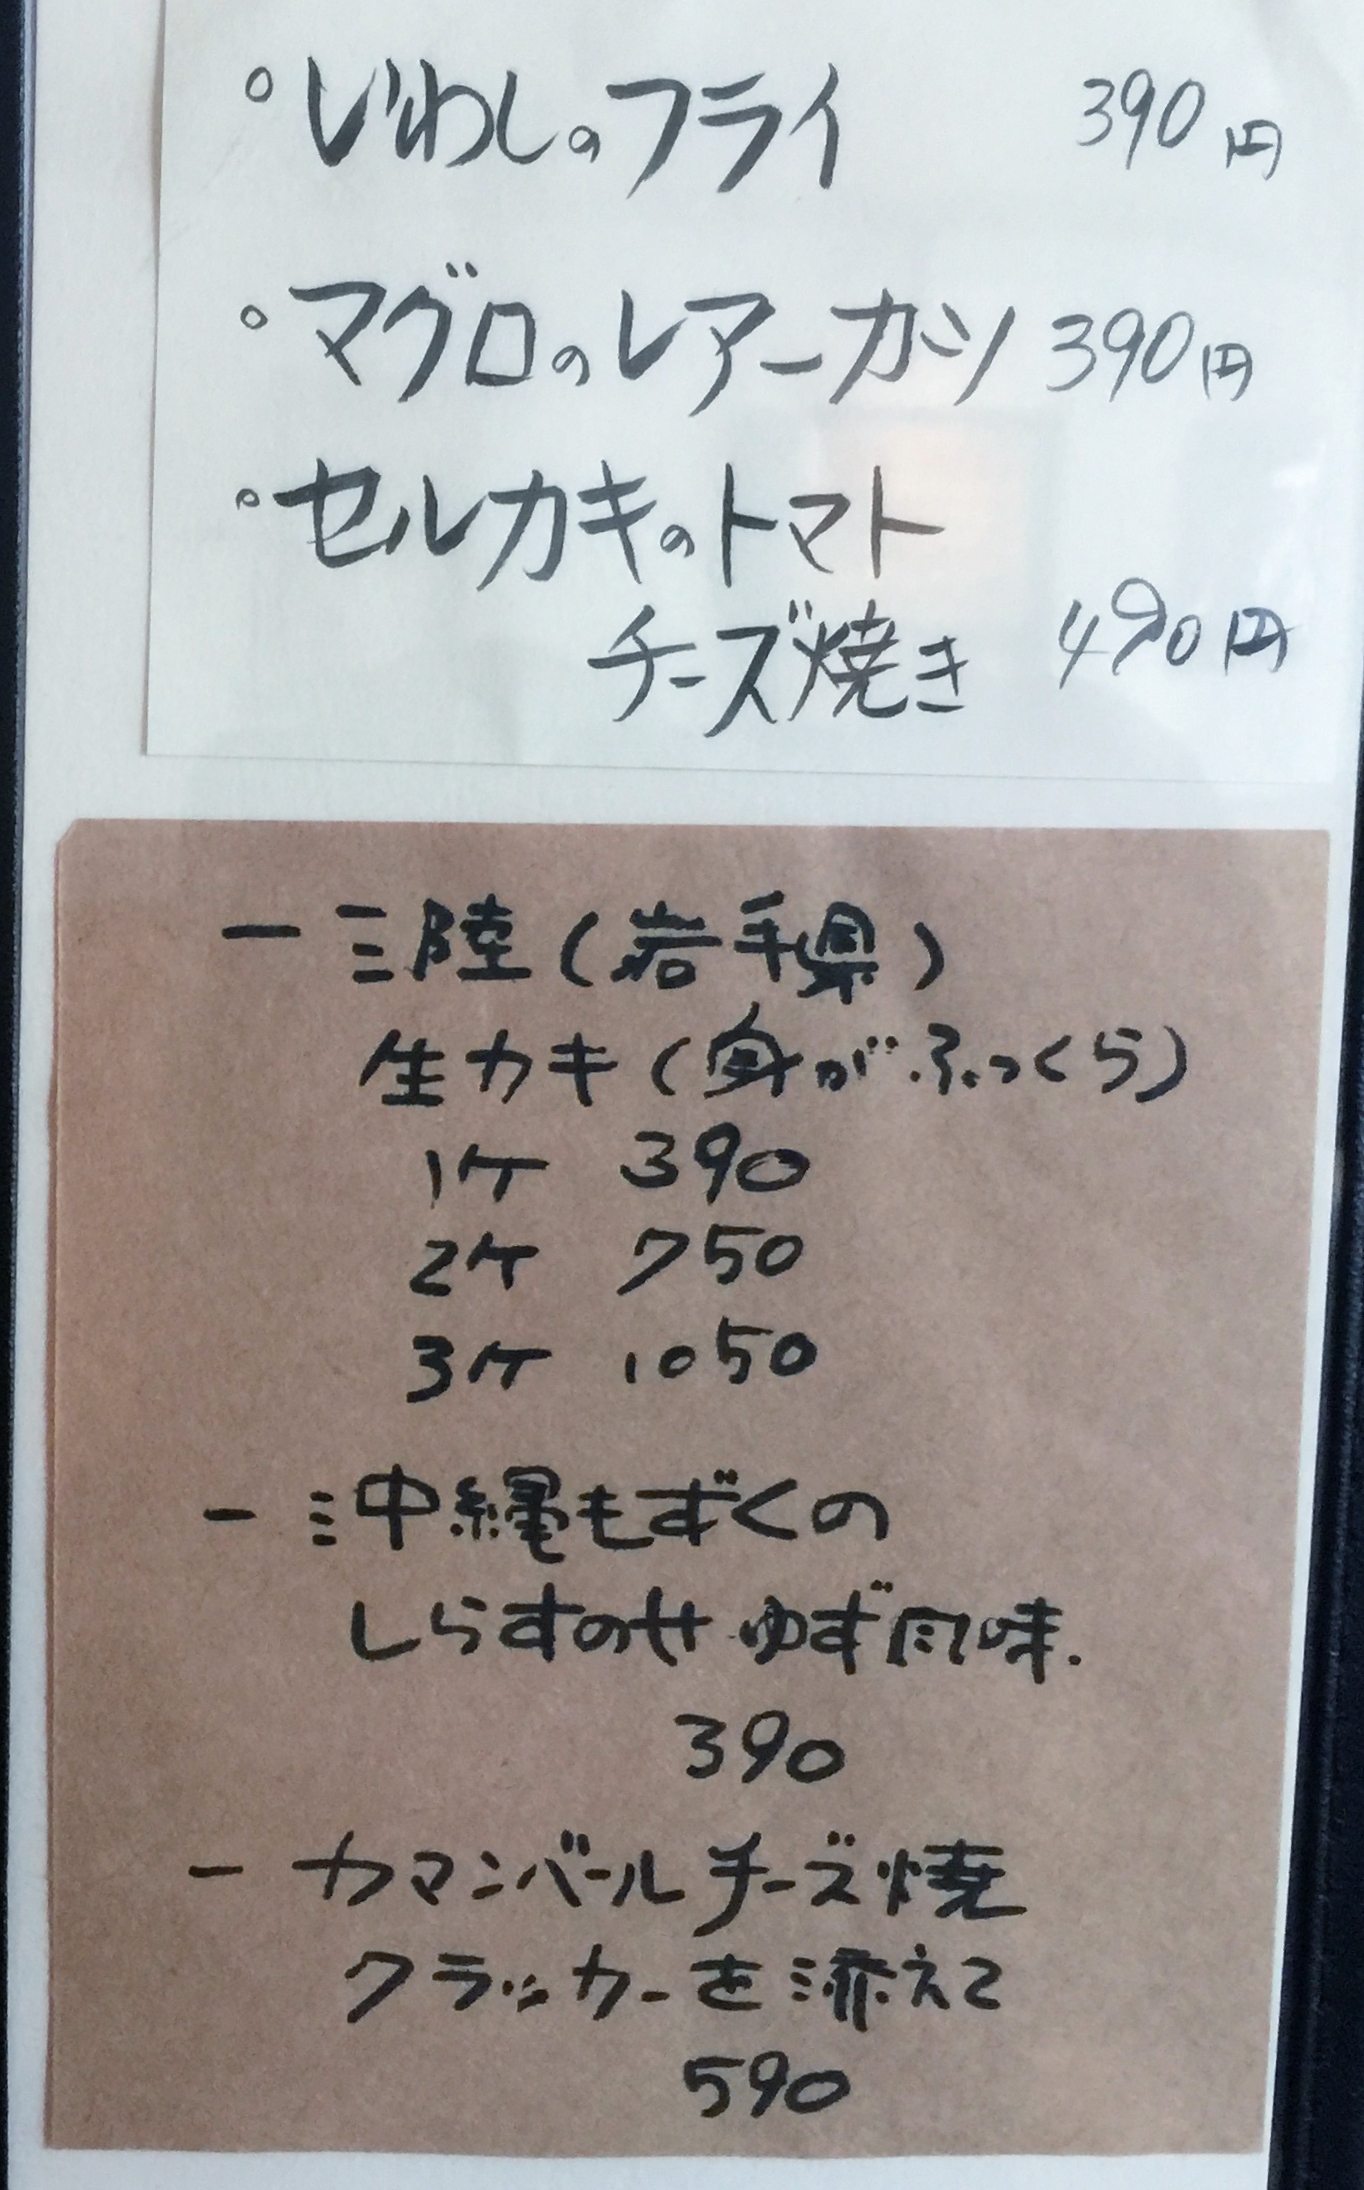 。いわしのフライ 390円
。マグロのレアーカツ 390円
。セルカキのトマト
チーズ焼き 490円
ー 三陸(岩手県)
生カキ(身がふっくら)
1ケ 390
2ケ 750
3ケ 1050
ー 沖縄もずくの
しらすのせ ゆず風味.
390
ー カマンベールチーズ焼
クラッカーを添えて
590